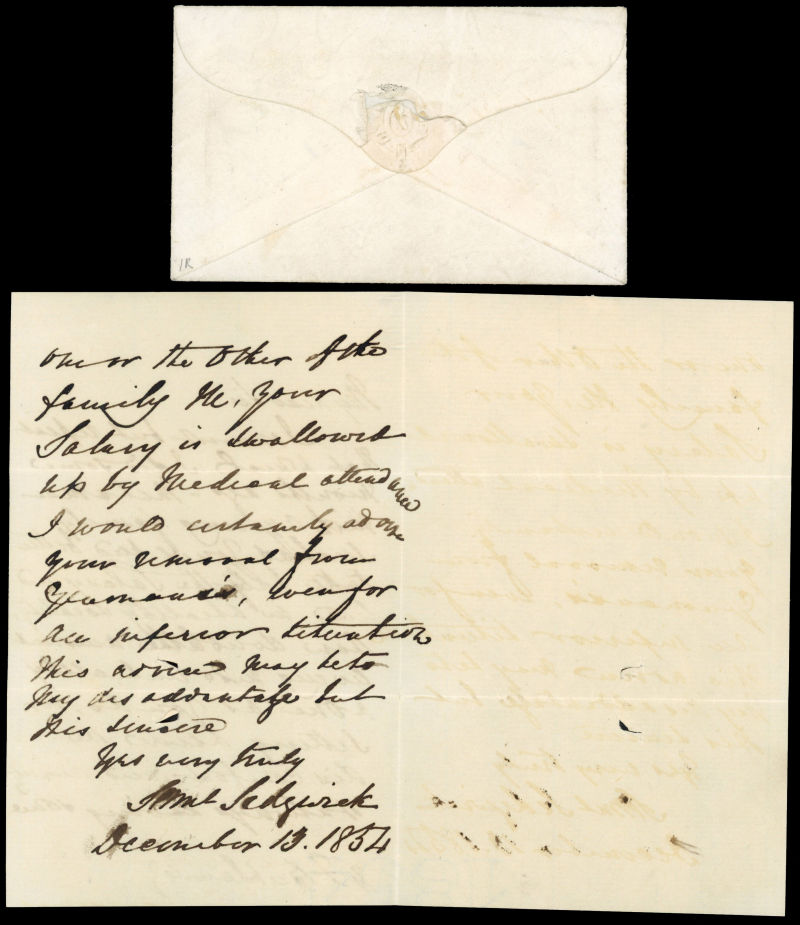 1R
one or the Other of the
family Mc, your
Salary is swallowed
up by Medical attendance
I would certainly advise
your removal from
even for
an inferior situation
this advice may be to
my disadvantage but
tis sincere
Yrs very truly
Saml Sedgwick
December 13. 1854